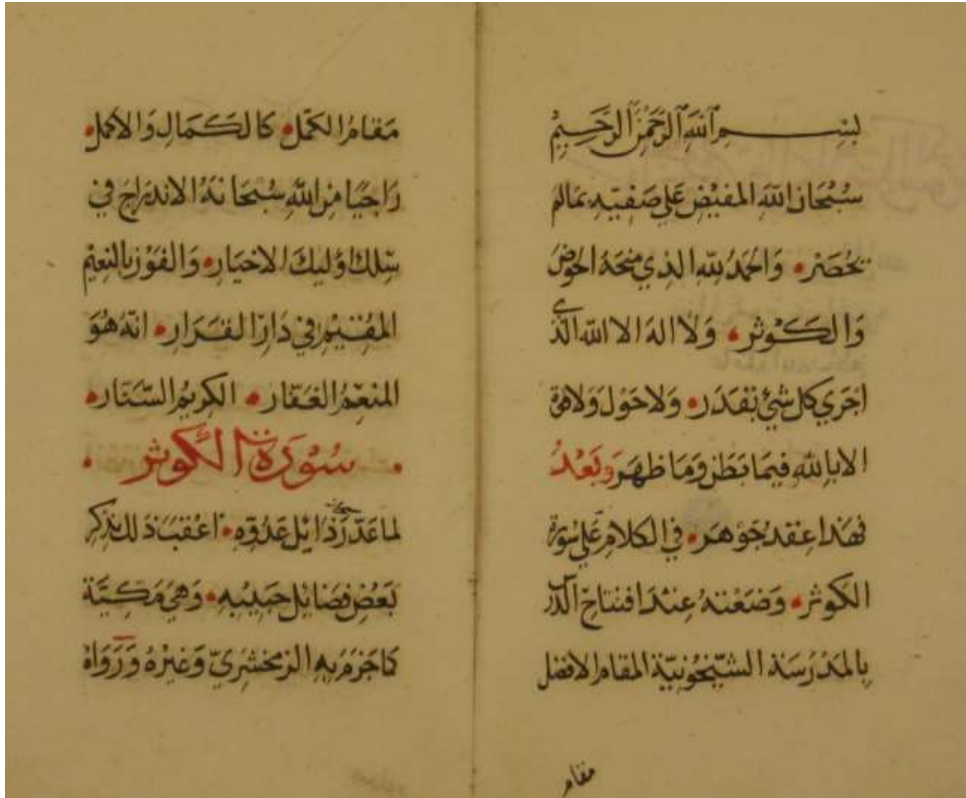 بسم الله الرحمن الرحيم
سبحان الله المفيض على صفيه بمالم
يحصر • والحمد لله الذي منحه الحوض
والكوثر • ولا اله الا الله الذي
اجري كل شئ بقدر • ولا حول ولا قوة
الا بالله فيما بطن وما ظهر وبعد
فهذا عقد جوهر • في الكلام على سورة
الكوثر • وضعته عند افتتاح الدرس
بالمدرسة الشيخونية المقام الافضل
مقام
مقام الكمل • كالكمال والاكمل •
راجيا من الله سبحانه الاندراج في
سلك وليك الاخيار • والفوز بالنعيم
المقيم في دار القرار • انه هو
المنعم الغفار • الكريم الستار •
• سورة الكوثر •
لما عدد رذايل عدوه • اعقب ذلك بذكر
بعض فضايل حبيبه • وهي مكية
كما جزم به الزمخشري وغيره ورواه